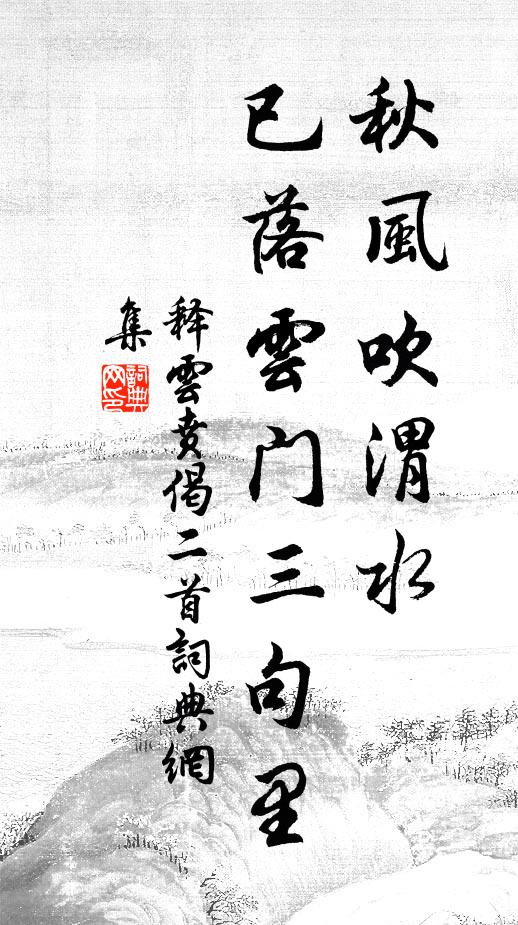 秋風吹渭水
已落雲門三句里
释雲賁偈二首詞典網
集
詞典網印